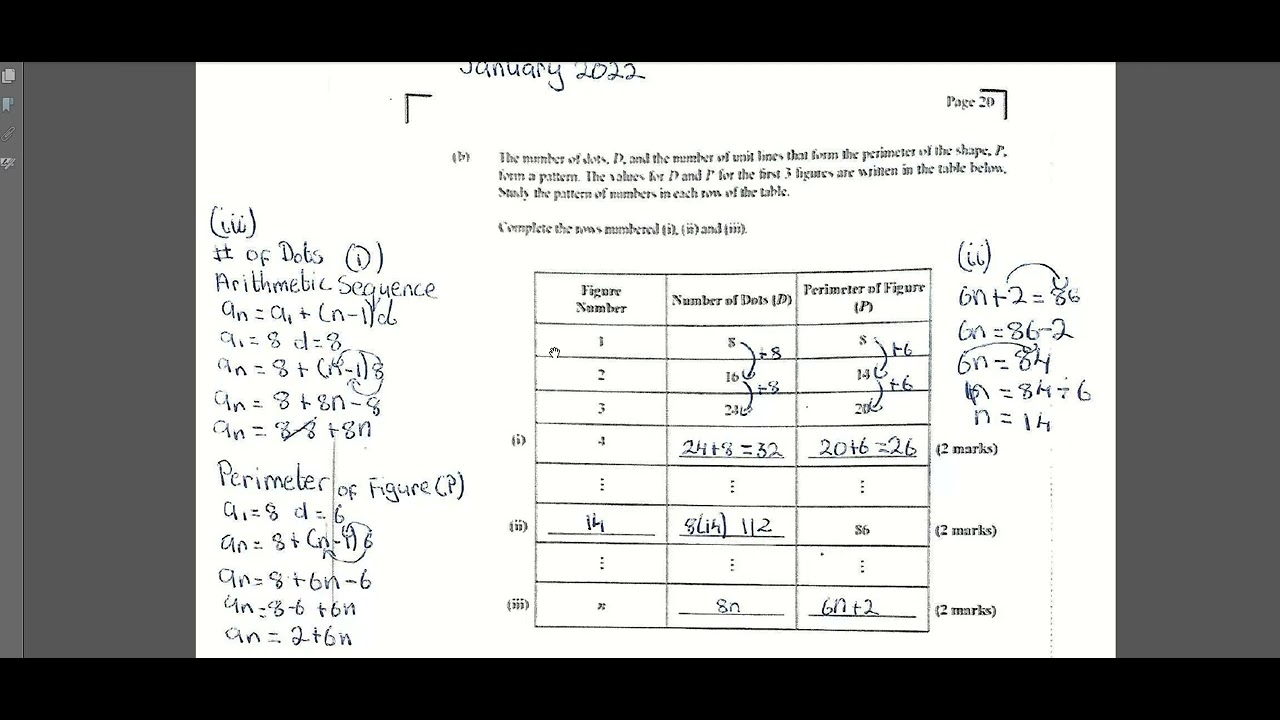 January 2022
Page 20
(b) The number of dots, D, and the number of unit lines that form the perimeter of the shape, P,
form a pattern. The values for D and P for the first 3 figures are written in the table below.
Study the pattern of numbers in each row of the table.
Complete the rows numbered (i), (ii) and (iii).
(iii)
# of Dots (i)
Arithmetic Sequence
an = a1 + (n-1)d
a1 = 8 d = 8
an = 8 + (n-1)8
an = 8 + 8n - 8
an = 8-8 + 8n
Perimeter of Figure (P)
a1 = 8 d = 6
an = 8 + (n-1)6
an = 8 + 6n - 6
an = 8-6 + 6n
an = 2+6n
Figure Number Number of Dots (D) Perimeter of Figure (P)
1 8 8
+8 +6
2 16 14
+8 +6
3 24 20
(i) 4 24+8 = 32 20+6 = 26 (2 marks)
⋮ ⋮ ⋮
(ii) 14 8(14) 112 86 (2 marks)
⋮ ⋮ ⋮
(iii) n 8n 6n+2 (2 marks)
(ii)
6n+2 = 86
6n = 86-2
6n = 84
n = 84 ÷ 6
n = 14